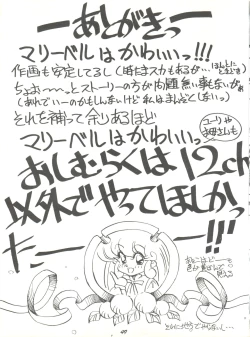 ーあとがきっー
マリーベルはかわいいっ!!!
作画も安定してるし(時たまスカもあるが…ほんとにときどき)
ちょぉ〜〜っとストーリーの方が問題無い事もないがぁ
(あれでいーのかもしんないけど 私はまんぞくしないっ)
それを補って余りあるほど
マリーベルはかわいいっ
ユーリやお母さんも
おしむらくは12ch
以外でやってほしかっ
たーーー!!"